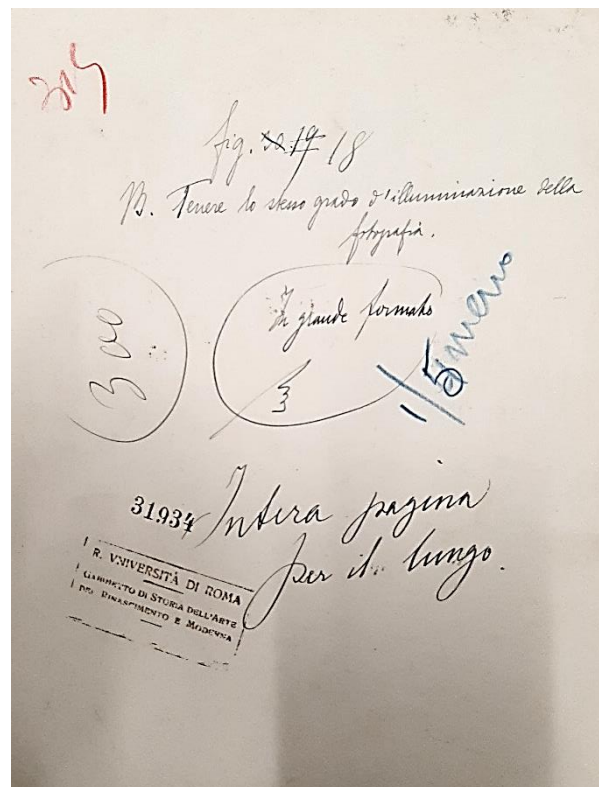 fig. 18
B. Tenere lo stesso grado d'illuminazione della
fotografia.
In grande formato
3
300
1/5 meno
31934
Intera pagina
per il lungo.
R. VNIVERSITÀ DI ROMA
GABINETTO DI STORIA DELL'ARTE
DEL RINASCIMENTO E MODERNA